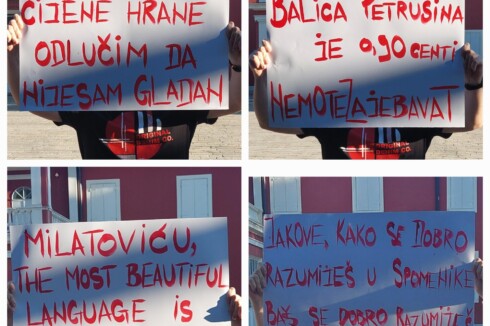 CIJENE HRANE
ODLUČIM DA
NIJESAM GLADAN
ORIGINAL
CO.
BALICA PETRUSINA
JE 0,90 CENTI
NEMOTE ZAJEBAVAT
MILATOVIĆU,
THE MOST BEAUTIFUL
LANGUAGE IS
JAKOVE, KAKO SE DOBRO
RAZUMIJEŠ U SPOMENIKE
BAŠ SE DOBRO RAZUMIJEŠ